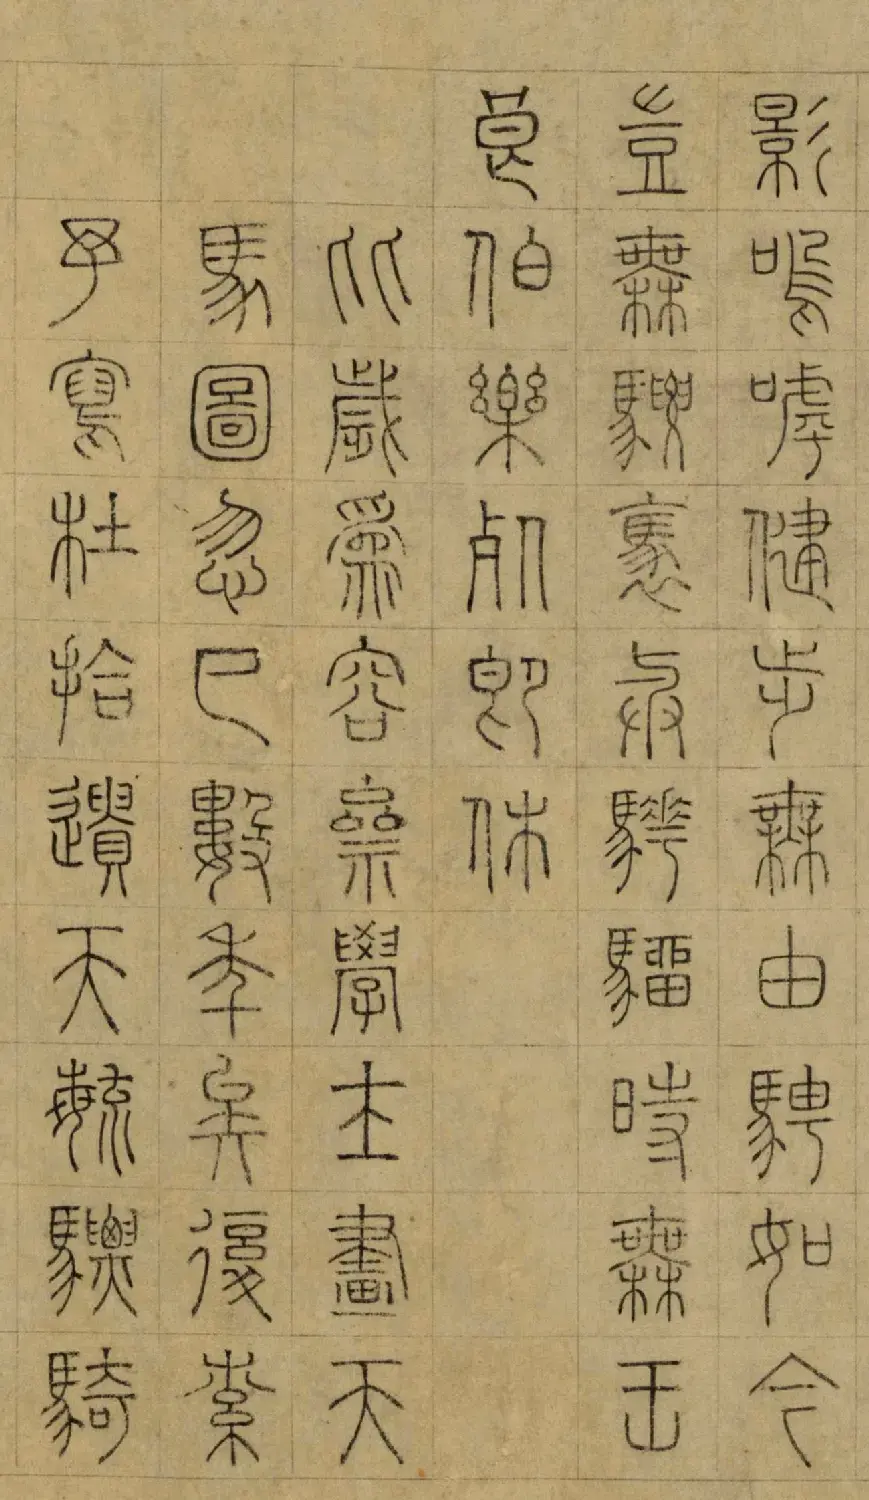 影嗚嘑健步無由騁如今
豈無騕褭與驊騮時無王
良伯樂死即休
比歲爲容齋學士畫天
馬圖忽已數年矣復索
予寫杜拾遺天育驃騎